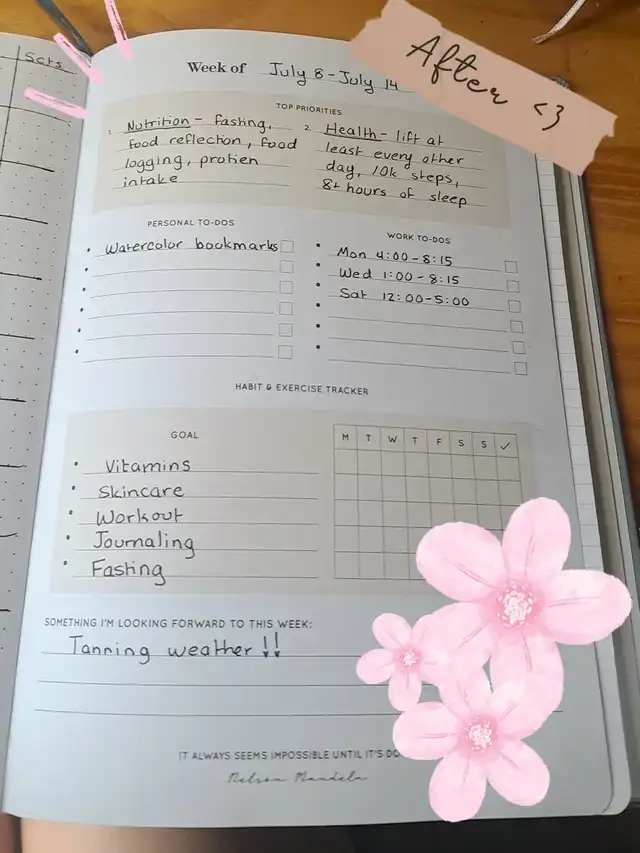 Scts
After <3
Week of July 8 - July 14
TOP PRIORITIES
1. Nutrition - fasting,
food reflection, food
logging, protien
intake
2. Health - lift at
least every other
day, 10k steps,
8+ hours of sleep
PERSONAL TO-DOS
• Watercolor bookmarks
WORK TO-DOS
• Mon 4:00 - 8:15
• Wed 1:00 - 8:15
• Sat 12:00 - 5:00
HABIT & EXERCISE TRACKER
GOAL
M T W T F S S ✓
• Vitamins
• Skincare
• Workout
• Journaling
• Fasting
SOMETHING I'M LOOKING FORWARD TO THIS WEEK:
Tanning weather !!
IT ALWAYS SEEMS IMPOSSIBLE UNTIL IT'S DO
Nelson Mandela